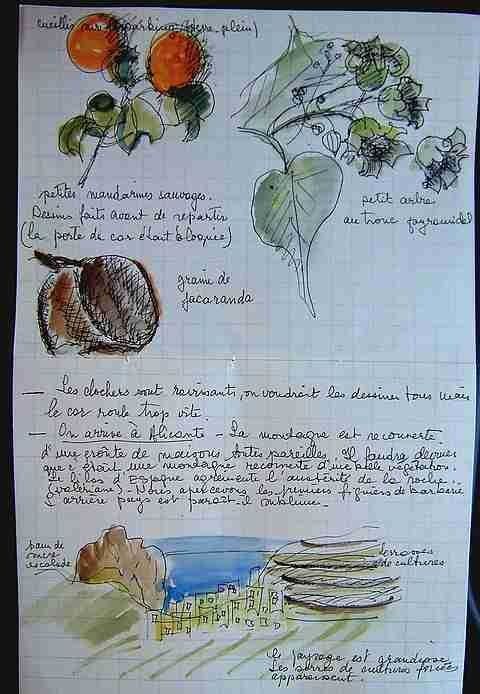 cueillis sur
petites mandarines sauvages.
Dessins faits avant de repartir
(la porte de car étant bloquée)
petit arbre
au tronc pyramidal
graine de
Jacaranda
— Les clochers sont ravissants, on voudrait les dessiner tous mais
le car roule trop vite.
— On arrive à Alicante - La montagne est recouverte
d'une croûte de maisons toutes pareilles. Il faudra deviner
que c'était une montagne recouverte d'une belle végétation.
Le lilas d'Espagne agrémente l'austérité de la roche.
(valériane) - Nous apercevons les premiers figuiers de barbarie
L'arrière pays est paraît-il sublime.
pain de
sucre
escalade
terrasses
de cultures
Le paysage est grandiose
Les serres de cultures forcées
apparaissent.